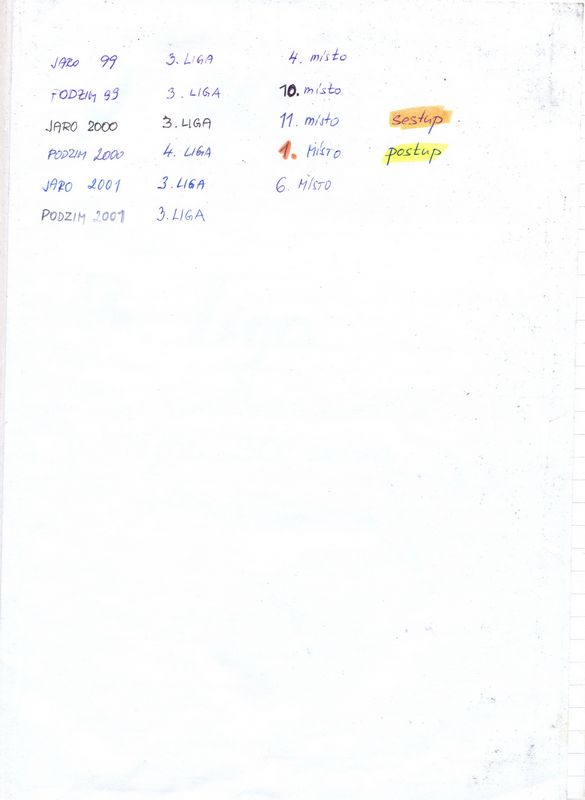 JARO 99 3. LIGA 4. místo
PODZIM 99 3. LIGA 10. místo
JARO 2000 3. LIGA 11. místo sestup
PODZIM 2000 4. LIGA 1. MÍSTO postup
JARO 2001 3. LIGA 6. MÍSTO
PODZIM 2001 3. LIGA